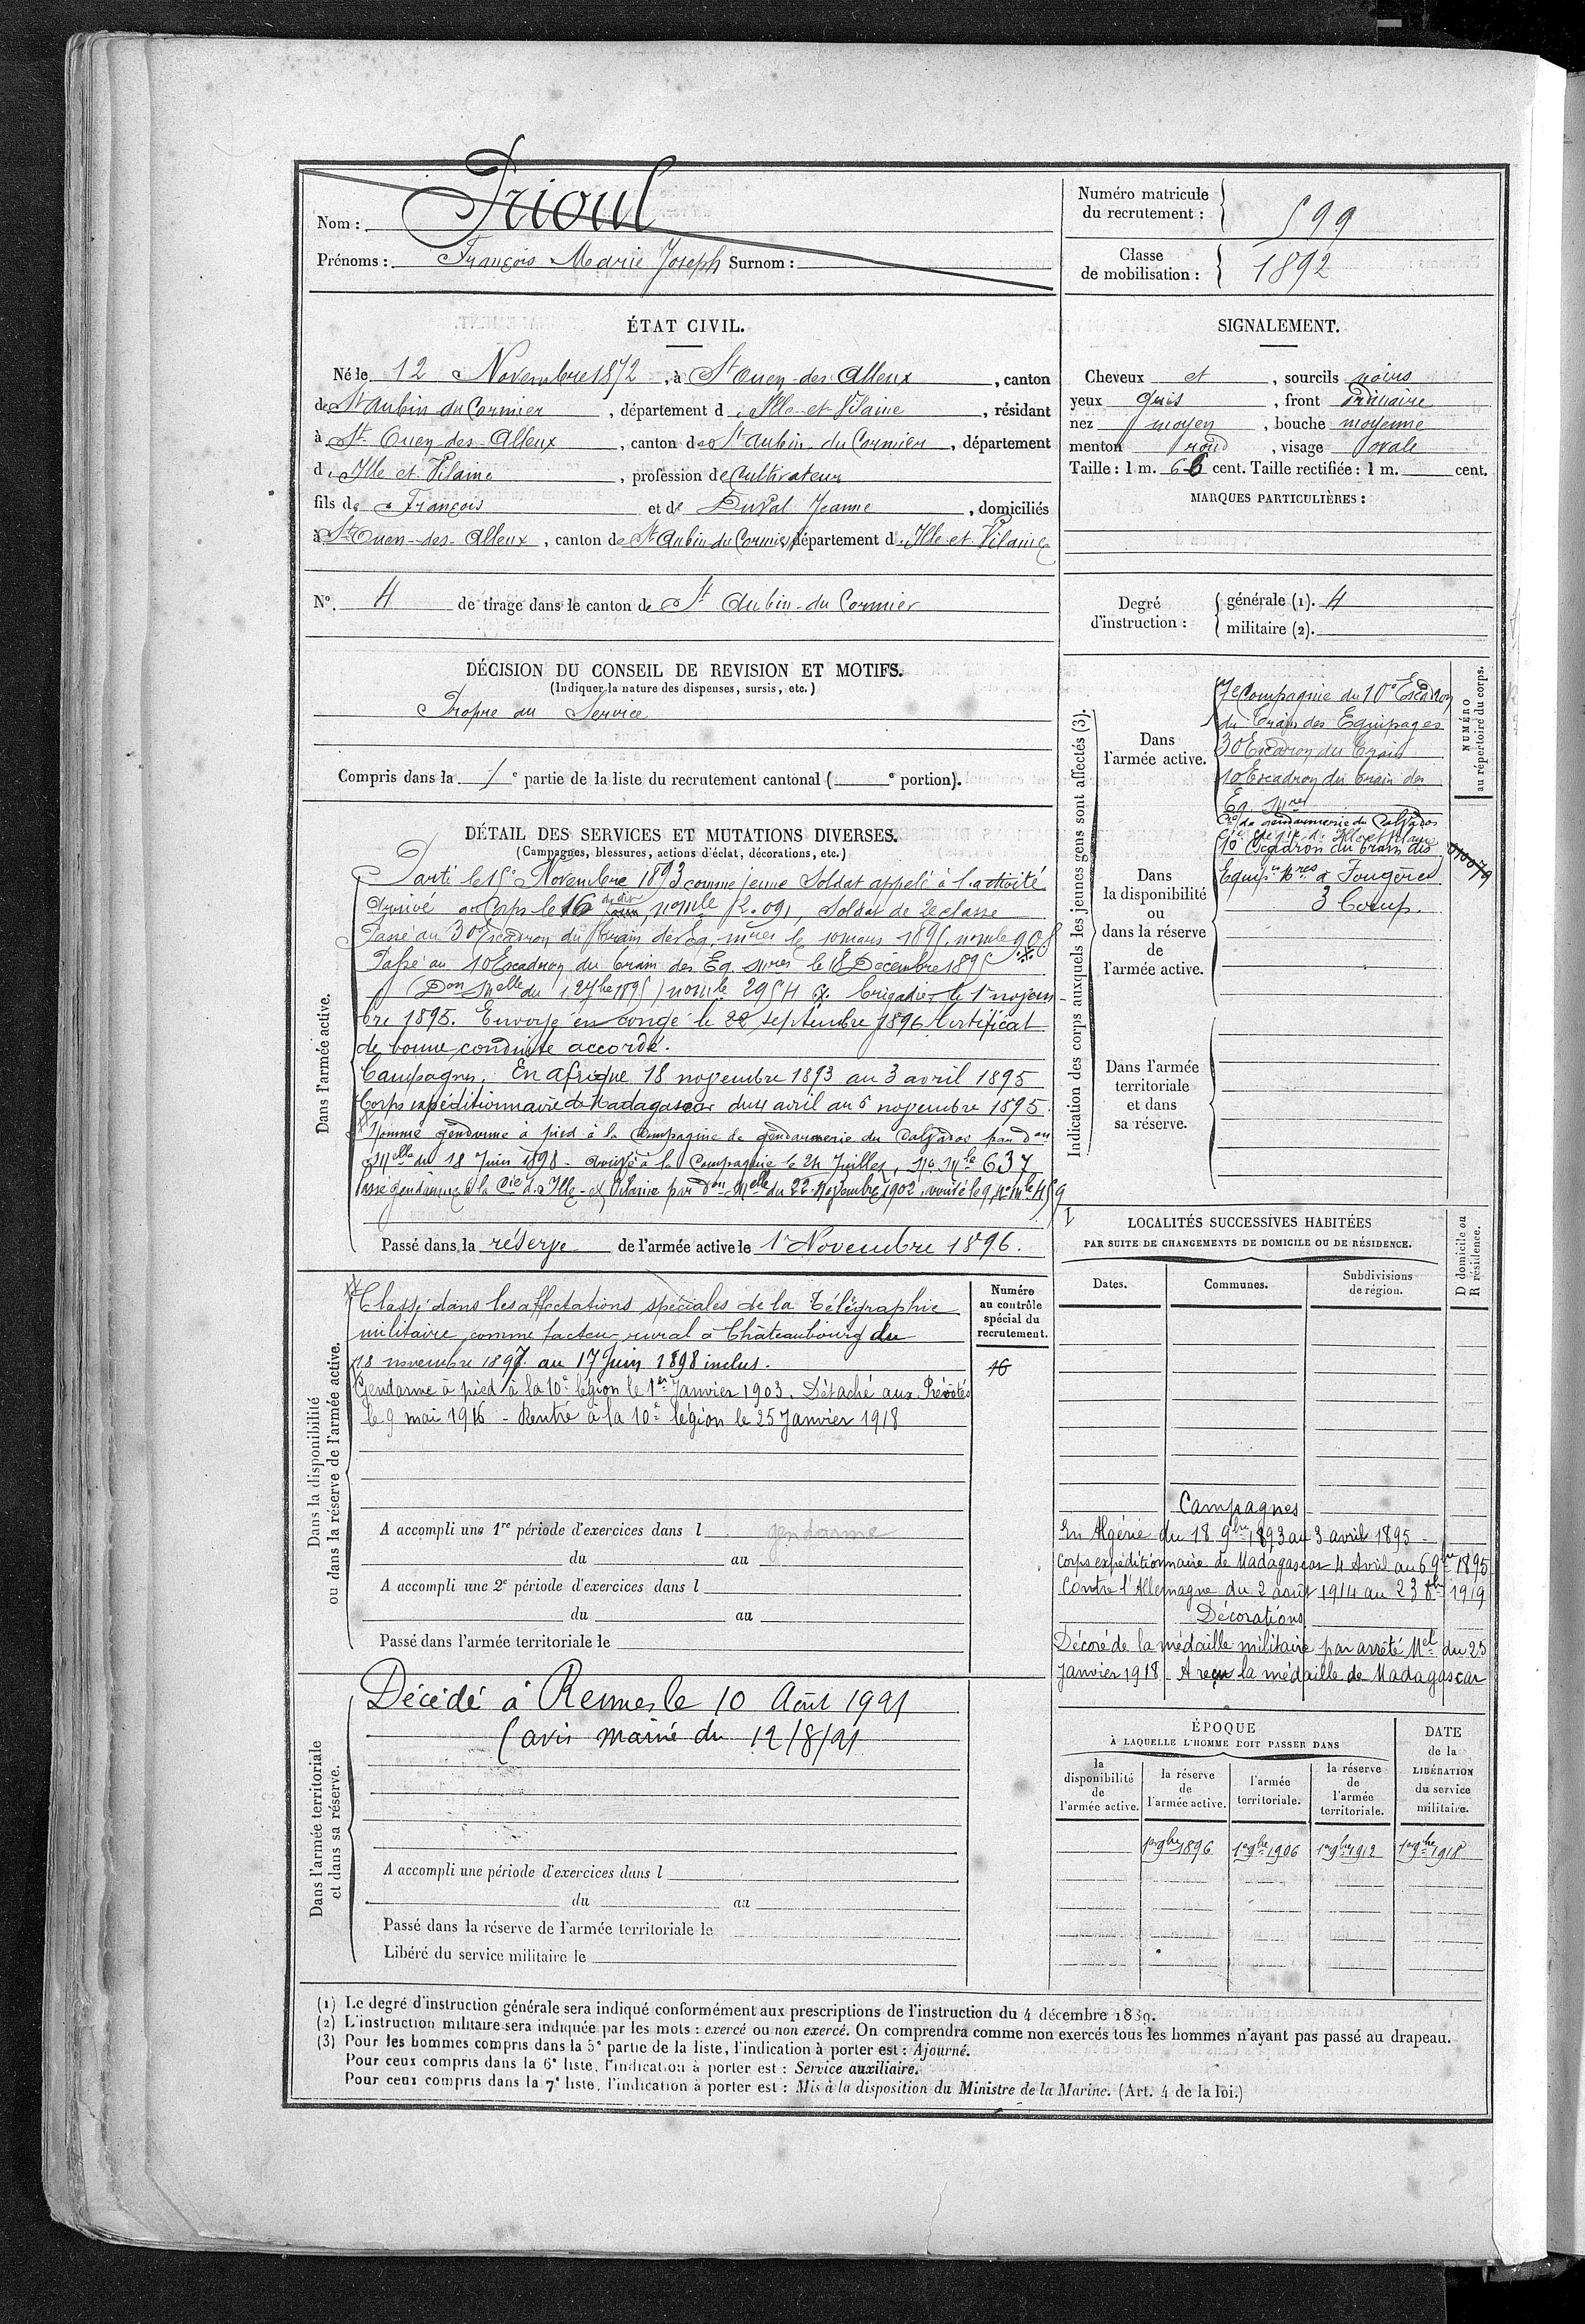 Nom : Prioul
Prénoms : François Marie Joseph Surnom :
Numéro matricule du recrutement : 599
Classe de mobilisation : 1892
ÉTAT CIVIL.
Né le 12 Novembre 1872, à St Ouen-des-Alleux, canton
de St Aubin du Cormier, département d'Ille-et-Vilaine, résidant
à St Ouen-des-Alleux, canton de St Aubin du Cormier, département
d'Ille et Vilaine, profession de Cultivateur
fils de François et de Duval Jeanne, domiciliés
à St Ouen-des-Alleux, canton de St Aubin du Cormier, département d'Ille-et-Vilaine
SIGNALEMENT.
Cheveux et, sourcils noirs
yeux gris, front ordinaire
nez moyen, bouche moyenne
menton rond, visage ovale
Taille : 1 m. 66 cent. Taille rectifiée : 1 m. cent.
MARQUES PARTICULIÈRES :
N°. 4 de tirage dans le canton de St Aubin-du-Cormier
Degré d'instruction :
générale (1). 4
militaire (2).
DÉCISION DU CONSEIL DE REVISION ET MOTIFS.
(Indiquer la nature des dispenses, sursis, etc.)
Propre au Service
Compris dans la 1e partie de la liste du recrutement cantonal ( e portion).
DÉTAIL DES SERVICES ET MUTATIONS DIVERSES.
(Campagnes, blessures, actions d'éclat, décorations, etc.)
Dans l'armée active.
Parti le 15 Novembre 1893 comme jeune Soldat appelé à l'activité
Arrivé au Corps le 16 du dit no mle 2.091, Soldat de 2e classe
Passé au 30 Escadron du Train des Eq. mres le 10 mars 1895. no mle 908
Passé au 10 Escadron du train des Eq. Mres le 18 Décembre 1895
(Don Melle du 27 bre 1895) no mle 2954 Brigadier le 1r novem-
bre 1895. Envoyé en congé le 22 septembre 1896 Certificat
de bonne conduite accordé.
Campagnes. En Afrique 18 novembre 1893 au 3 avril 1895
Corps expéditionnaire de Madagascar du 4 avril au 6 novembre 1895.
Nommé gendarme à pied à la Compagnie de gendarmerie du Calvados par don
Melle du 18 Juin 1898 - arrivé à la Compagnie le 24 Juillet, No Mle 637
Passé gendarme à la Cie d'Ille-et-Vilaine par don Melle du 22 Novembre 1902 le 9, No mle 459
Passé dans la réserve de l'armée active le 1r Novembre 1896.
Indication des corps auxquels les jeunes gens sont affectés (3).
NUMÉRO au répertoire du corps.
Dans l'armée active.
7e Compagnie du 10e Escadron
du Train des Equipages
30 Escadron du Train
10 Escadron du train des
Eq. Mres
Cie de gendarmerie du Calvados
Cie de gie d'Ille et Vilaine
Dans la disponibilité ou dans la réserve de l'armée active.
10e Escadron du train des
Equip. Mres à Fougères
3 Comp.
Dans l'armée territoriale et dans sa réserve.
Dans la disponibilité ou dans la réserve de l'armée active.
Classé dans les affectations spéciales de la Télégraphie
militaire, comme facteur rural à Châteaubourg du
18 novembre 1897 au 17 Juin 1898 inclus.
Gendarme à pied à la 10e légion le 1er Janvier 1903. Détaché aux Prévôtés
le 9 mai 1916 - Rentré à la 10e légion le 25 Janvier 1918
Numéro au contrôle spécial du recrutement.
16
A accompli une 1re période d'exercices dans l gendarme
du au
A accompli une 2e période d'exercices dans l
du au
Passé dans l'armée territoriale le
LOCALITÉS SUCCESSIVES HABITÉES
PAR SUITE DE CHANGEMENTS DE DOMICILE OU DE RÉSIDENCE.
Dates. Communes. Subdivisions de région. D domicile ou R résidence.
Campagnes
En Algérie du 18 9bre 1893 au 3 avril 1895 -
Corps expéditionnaire de Madagascar 4 Avril au 6 9bre 1895
Contre l'Allemagne du 2 août 1914 au 23 8bre 1919
Décorations
Décoré de la médaille militaire par arrêté Mel du 25
Janvier 1918 - A reçu la médaille de Madagascar
Dans l'armée territoriale et dans sa réserve.
Décédé à Rennes le 10 Août 1921
(avis mairie du 12/8/21
A accompli une période d'exercices dans l
du au
Passé dans la réserve de l'armée territoriale le
Libéré du service militaire le
ÉPOQUE
À LAQUELLE L'HOMME DOIT PASSER DANS
la disponibilité de l'armée active. la réserve de l'armée active. l'armée territoriale. la réserve de l'armée territoriale. DATE de la LIBÉRATION du service militaire.
1er 9bre 1896 1er 9bre 1906 1er 9bre 1912 1er 9bre 1918
(1) Le degré d'instruction générale sera indiqué conformément aux prescriptions de l'instruction du 4 décembre 1889.
(2) L'instruction militaire sera indiquée par les mots : exercé ou non exercé. On comprendra comme non exercés tous les hommes n'ayant pas passé au drapeau.
(3) Pour les hommes compris dans la 5e partie de la liste, l'indication à porter est : Ajourné.
Pour ceux compris dans la 6e liste, l'indication à porter est : Service auxiliaire.
Pour ceux compris dans la 7e liste, l'indication à porter est : Mis à la disposition du Ministre de la Marine. (Art. 4 de la loi.)